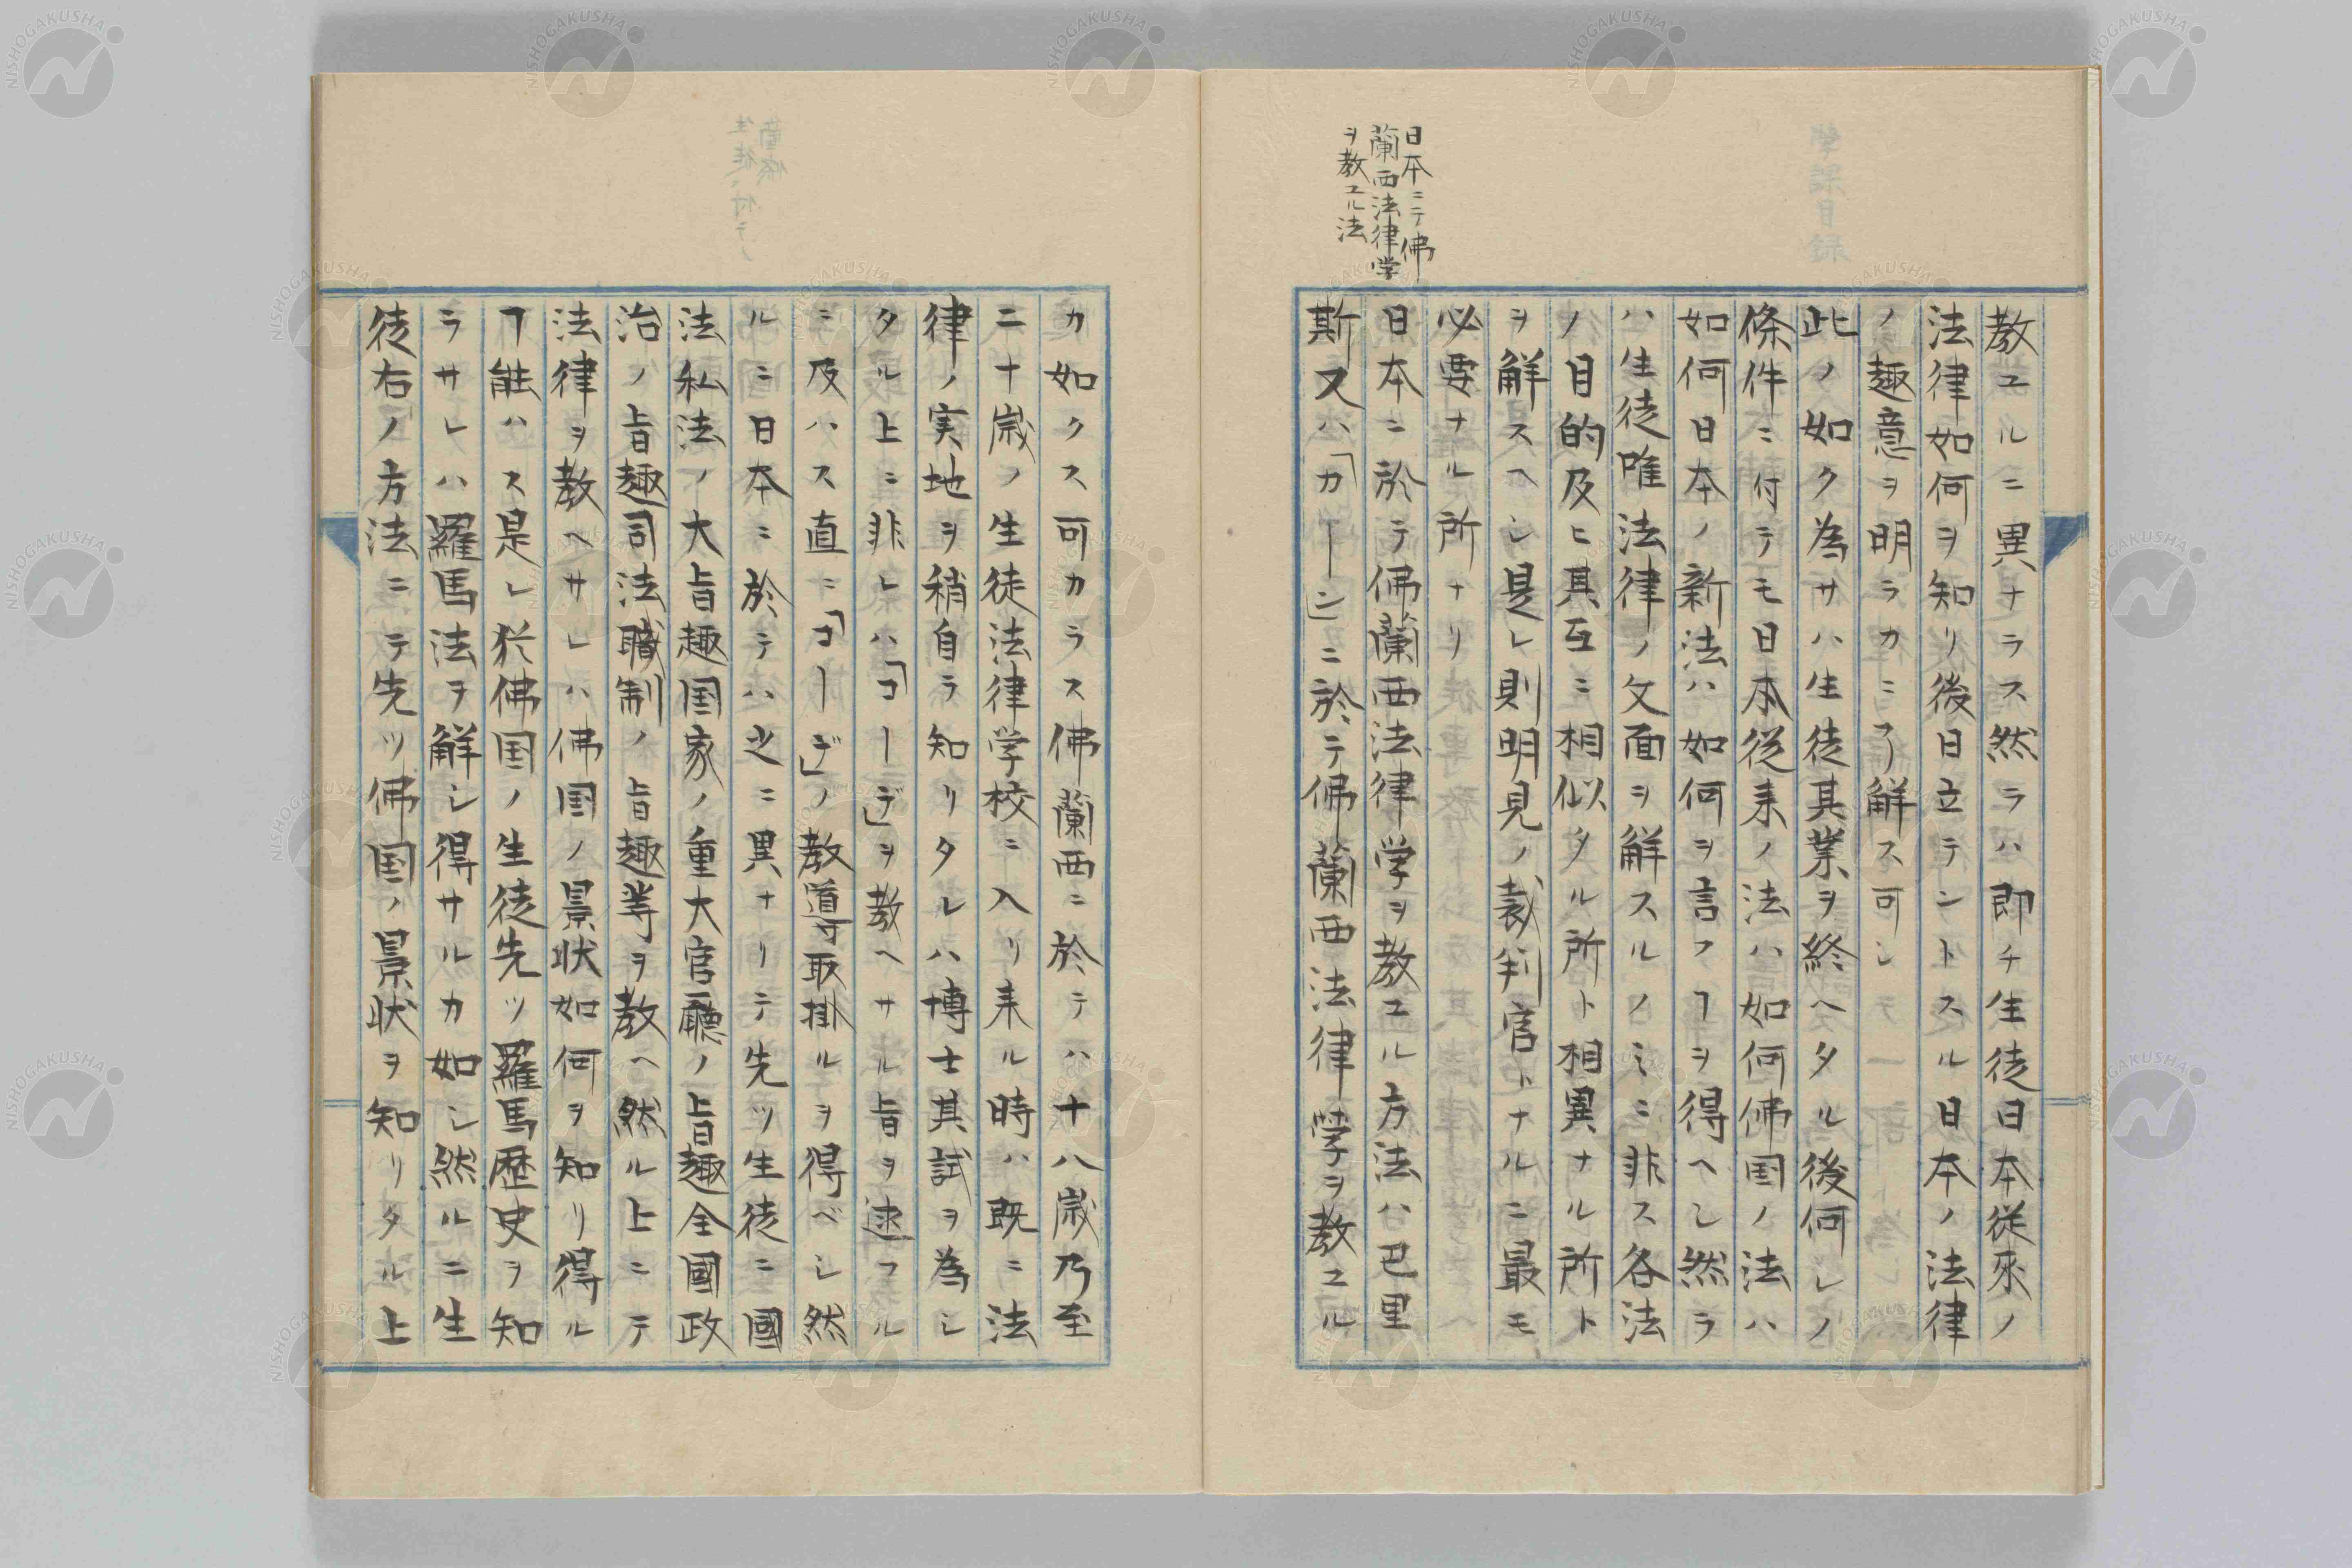 教ユルニ異ナラス然ラハ即チ生徒日本従來ノ
法律如何ヲ知リ後日立テントスル日本ノ法律
ノ趣意ヲ明ラカニ了解ス可シ
此ノ如ク為サハ生徒其業ヲ終ヘタル後何レノ
條件ニ付テモ日本従来ノ法ハ如何佛国ノ法ハ
如何日本ノ新法ハ如何ヲ言フヿヲ得ヘシ然ラ
ハ生徒唯法律ノ文面ヲ解スルノミニ非ス各法
ノ目的及ヒ其互ニ相似タル所ト相異ナル所ト
ヲ解スヘシ是レ則明見ノ裁判官トナルニ最モ
必要ナル所ナリ
日本ニテ佛
蘭西法律学
ヲ教ユル法
日本ニ於テ佛蘭西法律学ヲ教ユル方法ハ巴里
斯又ハ「カーン」ニ於テ佛蘭西法律学ヲ教ユル
カ如クス可カラス佛蘭西ニ於テハ十八歳乃至
二十歳ノ生徒法律学校ニ入リ来ル時ハ既ニ法
律ノ実地ヲ稍自ラ知リタレハ博士其試ヲ為シ
タル上ニ非レハ「コーデ」ヲ教ヘサル旨ヲ逑フル
ニ及ハス直ニ「コーデ」ノ教導取掛ルヲ得ベシ然
ルニ日本ニ於テハ之ニ異ナリテ先ツ生徒ニ國
法私法ノ大旨趣国家ノ重大官廳ノ旨趣全國政
治ノ旨趣司法職制ノ旨趣等ヲ教ヘ然ル上ニテ
法律ヲ教ヘサレハ佛国ノ景状如何ヲ知リ得ル
ヿ能ハス是レ犹佛国ノ生徒先ツ羅馬歴史ヲ知
ラサレハ羅馬法ヲ解シ得サルカ如シ然ルニ生
徒右ノ方法ニテ先ツ佛国ノ景状ヲ知リタル上
NISHOGAKUSHA